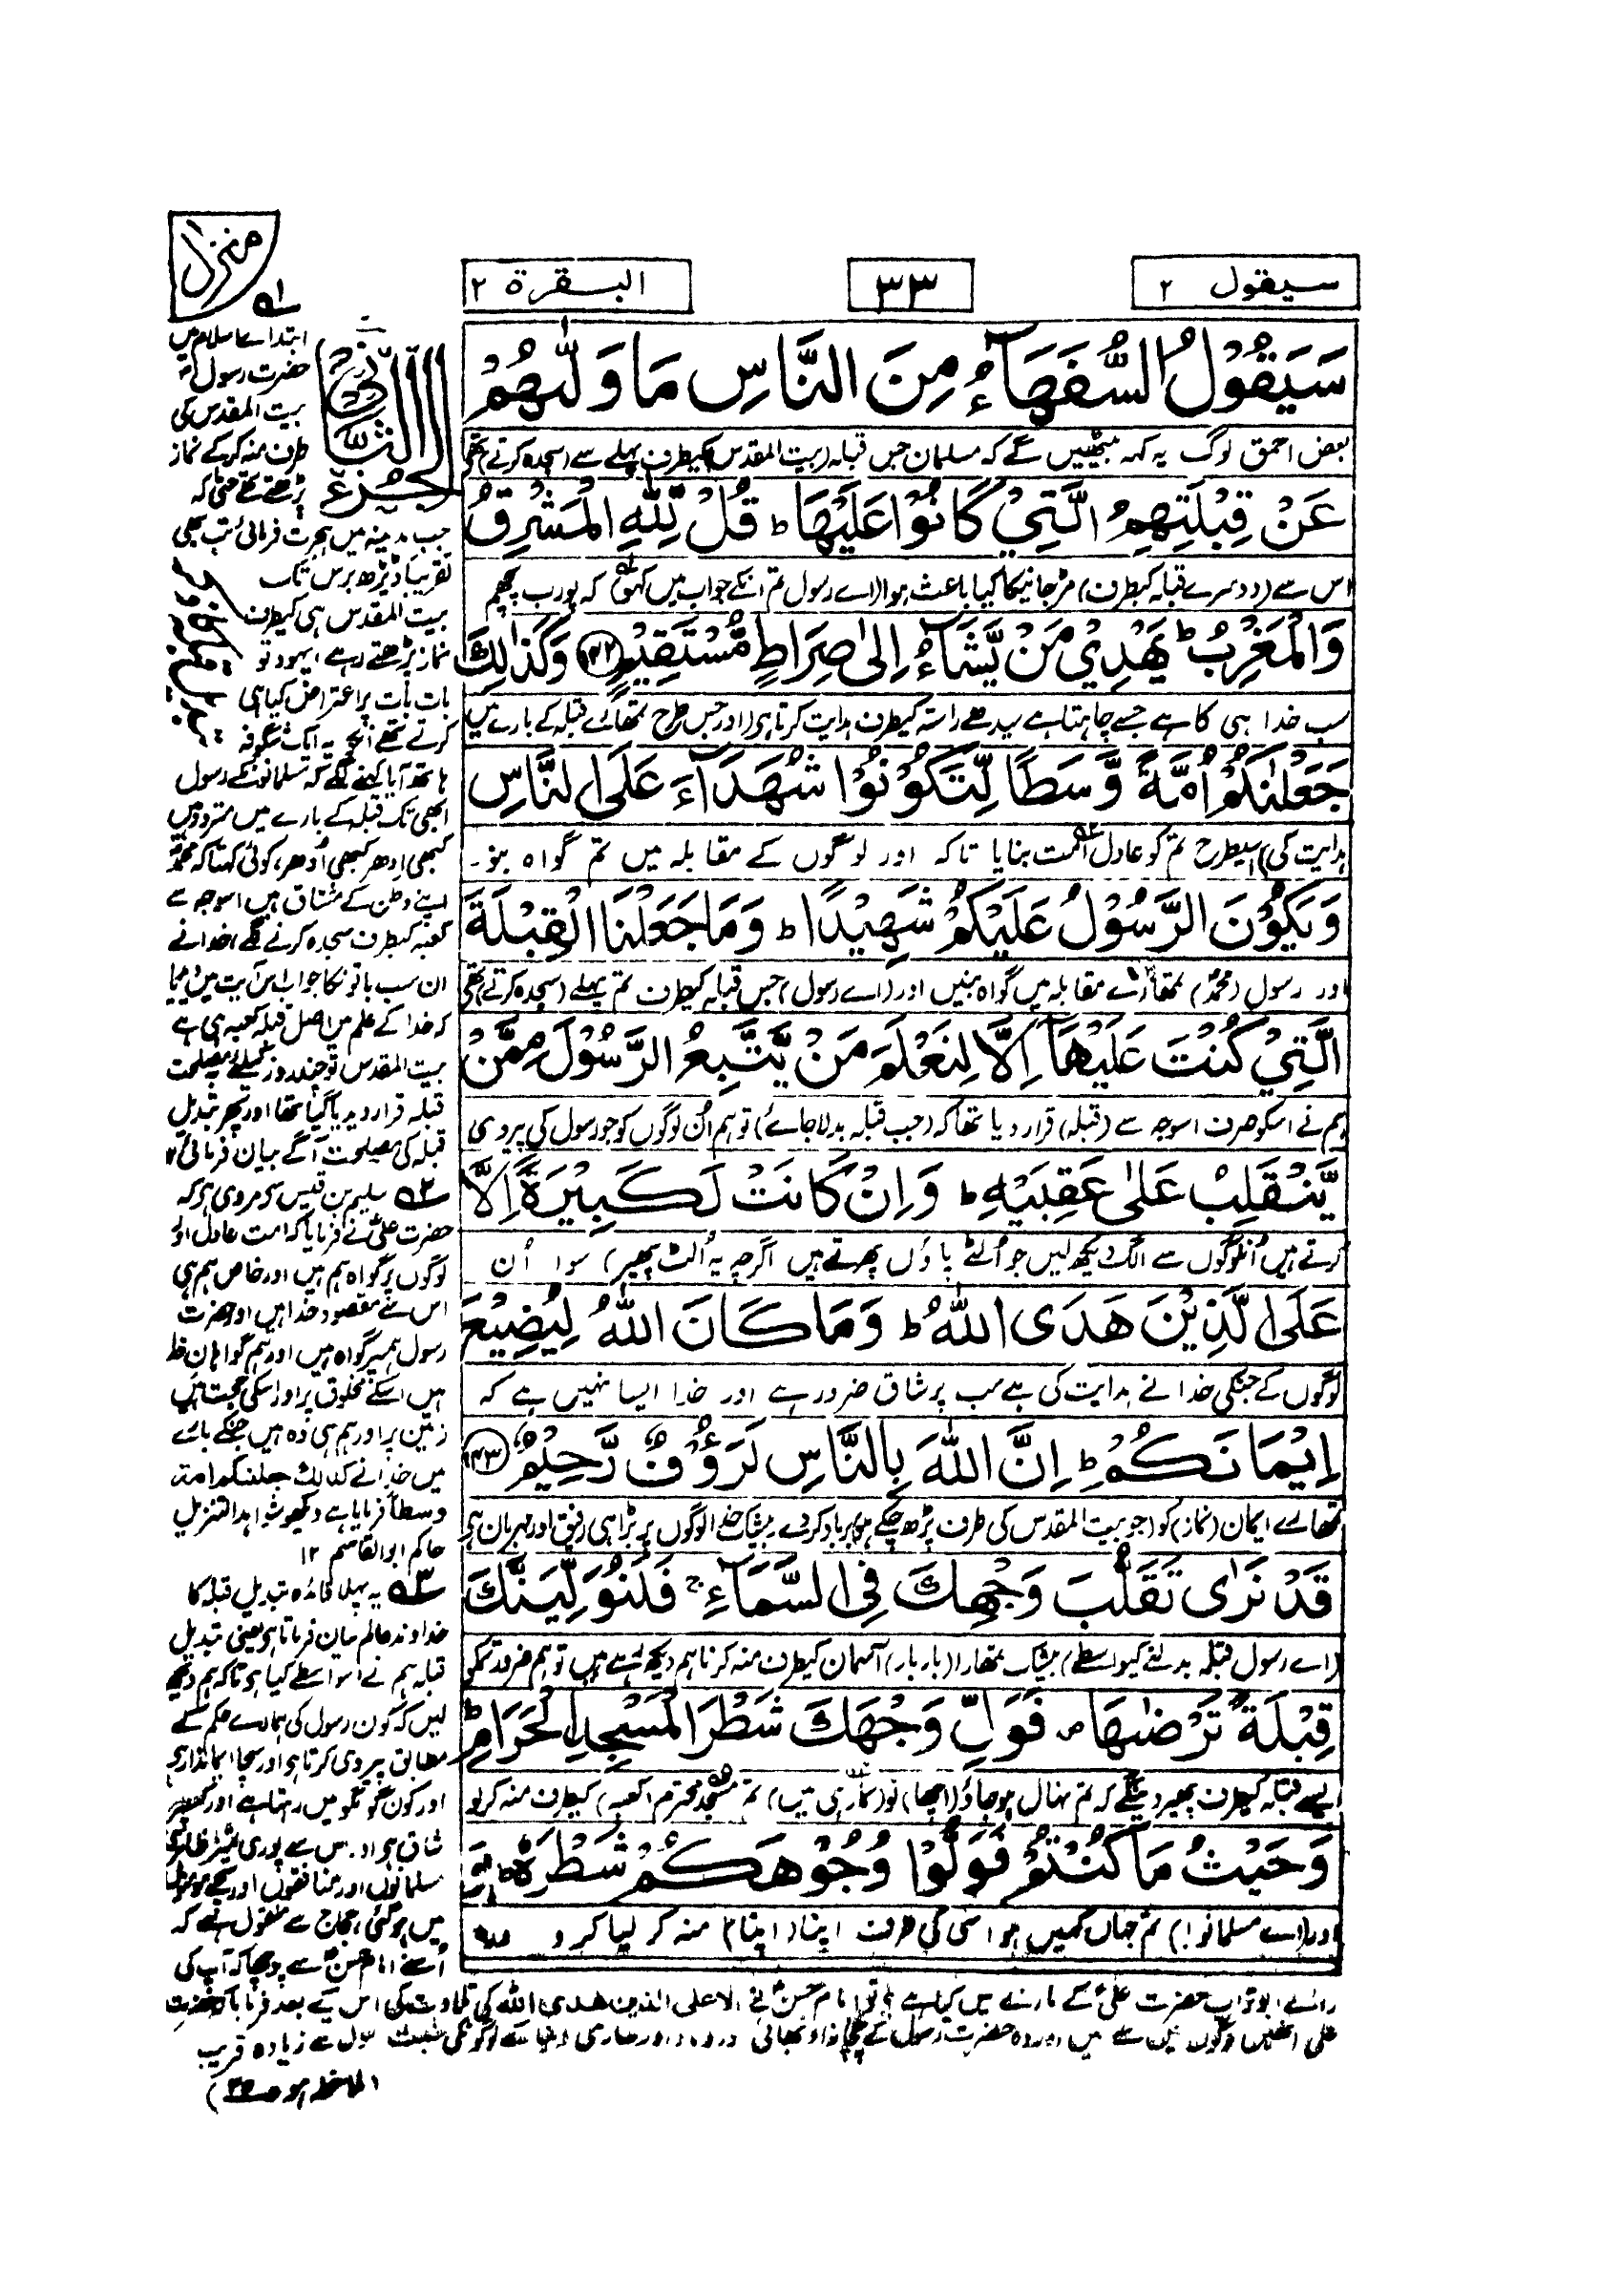 سیقول ۲
۳۳
البقرة ۲
منزل
سَيَقُوْلُ السُّفَهَآءُ مِنَ النَّاسِ مَا وَلّٰىهُمْ
بعض احمق لوگ یہ کہہ بیٹھیں گے کہ مسلمان جس قبلہ (بیت المقدس) کیطرف پہلے سے (سجدہ کرتے) تھے
عَنْ قِبْلَتِهِمُ الَّتِيْ كَانُوْا عَلَيْهَا ؕ قُلْ لِّلّٰهِ الْمَشْرِقُ
اس سے (دوسرے قبلہ کیطرف) مڑ جانیکا کیا باعث ہوا (اے رسول تم انکے جواب میں کہو) کہ پورب پچھم
وَالْمَغْرِبُ ؕ يَهْدِيْ مَنْ يَّشَآءُ اِلٰى صِرَاطٍ مُّسْتَقِيْمٍ ﴿۱۴۲﴾ وَكَذٰلِكَ
سب خدا ہی کا ہے جسے چاہتا ہے سیدھے راستہ کیطرف ہدایت کرتا ہی (اور جس طرح تمھارے قبلہ کے بارے میں
جَعَلْنٰكُمْ اُمَّةً وَّسَطًا لِّتَكُوْنُوْا شُهَدَآءَ عَلَى النَّاسِ
ہدایت کی) اسیطرح تم کو عادل امت بنایا تاکہ اور لوگوں کے مقابلہ میں تم گواہ بنو۔
وَيَكُوْنَ الرَّسُوْلُ عَلَيْكُمْ شَهِيْدًا ؕ وَمَا جَعَلْنَا الْقِبْلَةَ
اور رسول (محمدؐ) تمھارے مقابلہ میں گواہ بنیں اور (اے رسول) جس قبلہ کیطرف تم پہلے (سجدہ کرتے) تھے
الَّتِيْ كُنْتَ عَلَيْهَآ اِلَّا لِنَعْلَمَ مَنْ يَّتَّبِعُ الرَّسُوْلَ مِمَّنْ
ہم نے اسکو صرف اسوجہ سے (قبلہ) قرار دیا تھا کہ (جب قبلہ بدلا جائے) تو ہم اُن لوگوں کو جو رسول کی پیروی
يَّنْقَلِبُ عَلٰى عَقِبَيْهِ ؕ وَاِنْ كَانَتْ لَكَبِيْرَةً اِلَّا
کرتے ہیں اُن لوگوں سے الگ دیکھ لیں جو اُلٹے پاؤں پھرتے ہیں اگرچہ یہ اُلٹ پھیر) سوا اُن
عَلَى الَّذِيْنَ هَدَى اللّٰهُ ؕ وَمَا كَانَ اللّٰهُ لِيُضِيْعَ
لوگوں کے جنکی خدا نے ہدایت کی ہے سب پر شاق ضرور ہے اور خدا ایسا نہیں ہے کہ
اِيْمَانَكُمْ ؕ اِنَّ اللّٰهَ بِالنَّاسِ لَرَءُوْفٌ رَّحِيْمٌ ﴿۱۴۳﴾
تمھارے ایمان (نماز) کو (جو بیت المقدس کی طرف پڑھ چکے ہو) برباد کر دے بیشک خدا لوگوں پر بڑا ہی رفیق اور مہربان ہی
قَدْ نَرٰى تَقَلُّبَ وَجْهِكَ فِي السَّمَآءِ ۚ فَلَنُوَلِّيَنَّكَ
(اے رسول قبلہ بدلنے کیواسطے) بیشک تمھارا (بار بار) آسمان کیطرف منہ کرنا ہم دیکھ رہے ہیں تو ہم ضرور تمکو
قِبْلَةً تَرْضٰىهَا ۪ فَوَلِّ وَجْهَكَ شَطْرَ الْمَسْجِدِ الْحَرَامِ ؕ
ایسے قبلہ کیطرف پھیر دینگے کہ تم نہال ہو جاؤ (اچھا) تو (نماز ہی میں) تم مسجد محترم (کعبہ) کیطرف منہ کر لو
وَحَيْثُ مَا كُنْتُمْ فَوَلُّوْا وُجُوْهَكُمْ شَطْرَهٗ ؕ وَ
اور (اے مسلمانو!) تم جہاں کہیں ہو اسی کی طرف اپنا (اپنا) منہ کر لیا کرو
الجزء الثانی
۱ـہ
ابتداے اسلام میں
حضرت رسولؐ
بیت المقدس کی
طرف منہ کر کے نماز
پڑھتے تھے حتٰی کہ
جب مدینہ میں ہجرت فرمائی تب بھی
تقریباً ڈیڑھ برس تک
بیت المقدس ہی کیطرف
نماز پڑھتے رہے یہود تو
بات بات پر اعتراض کیا ہی
کرتے تھے یہ ایک شگوفہ
ہاتھ آیا کہنے لگے کہ مسلمانونکے رسول
ابھی تک قبلہ کے بارے میں متردد ہیں
کبھی اِدھر کبھی اُدھر، کوئی کہتا کہ محمدؐ
اپنے وطن کے مشتاق ہیں اسوجہ سے
کعبہ کیطرف سجدہ کرنے لگے، خدا نے
ان سب باتونکا جواب اس آیت میں دیا
کہ خدا کے علم میں اصل قبلہ کعبہ ہی ہے
بیت المقدس تو چند روز کیلئے بمصلحت
قبلہ قرار دیدیا گیا تھا اور پھر تبدیل
قبلہ کی مصلحت آگے بیان فرمائی ۱۲
۲ـہ سلیم بن قیس سے مروی ہی کہ
حضرت علیؑ نے فرمایا کہ امت عادل اور
لوگوں پر گواہ ہم ہیں اور خاص ہم ہی
اس سے مقصود خدا ہیں اور حضرت
رسول ہمپر گواہ ہیں اور ہم گواہان خدا
ہیں اسکے مخلوق پر اور اسکی حجت ہیں
زمین پر اور ہم ہی وہ ہیں جنکے بارے
میں خدا نے کذلك جعلنكم امة
وسطا فرمایا ہے دیکھو شواہد التنزیل
حاکم ابو القاسم ۱۲
۳ـہ یہ پہلا فائدہ تبدیل قبلہ کا
خداوند عالم بیان فرماتا ہی یعنی تبدیل
قبلہ ہم نے اسواسطے کیا ہی تاکہ ہم دیکھ
لیں کہ کون رسول کی ہمارے حکم کے
مطابق پیروی کرتا ہو اور سچا ایماندار ہی
اور کون گومگو میں رہتا ہے اور کسپر
شاق ہی اور اس سے پوری تمیز ظاہری
مسلمانوں اور منافقوں اور سچے مومنوں
میں ہو گئی، حجاج سے منقول ہے کہ
اُسنے امام حسنؑ سے پوچھا کہ آپ کی
رائے ابو تراب حضرت علیؑ کے بارے میں کیا ہے تو امام حسنؑ نے الا علی الذین ھدی اللہ کی تلاوت کی اس کے بعد فرمایا کہ حضرت
علی انھیں لوگوں میں سے ہیں اور وہ حضرت رسول کے چچا زاد بھائی اور لوگونکی نسبت سے زیادہ قریب
(ملاحظہ ہو